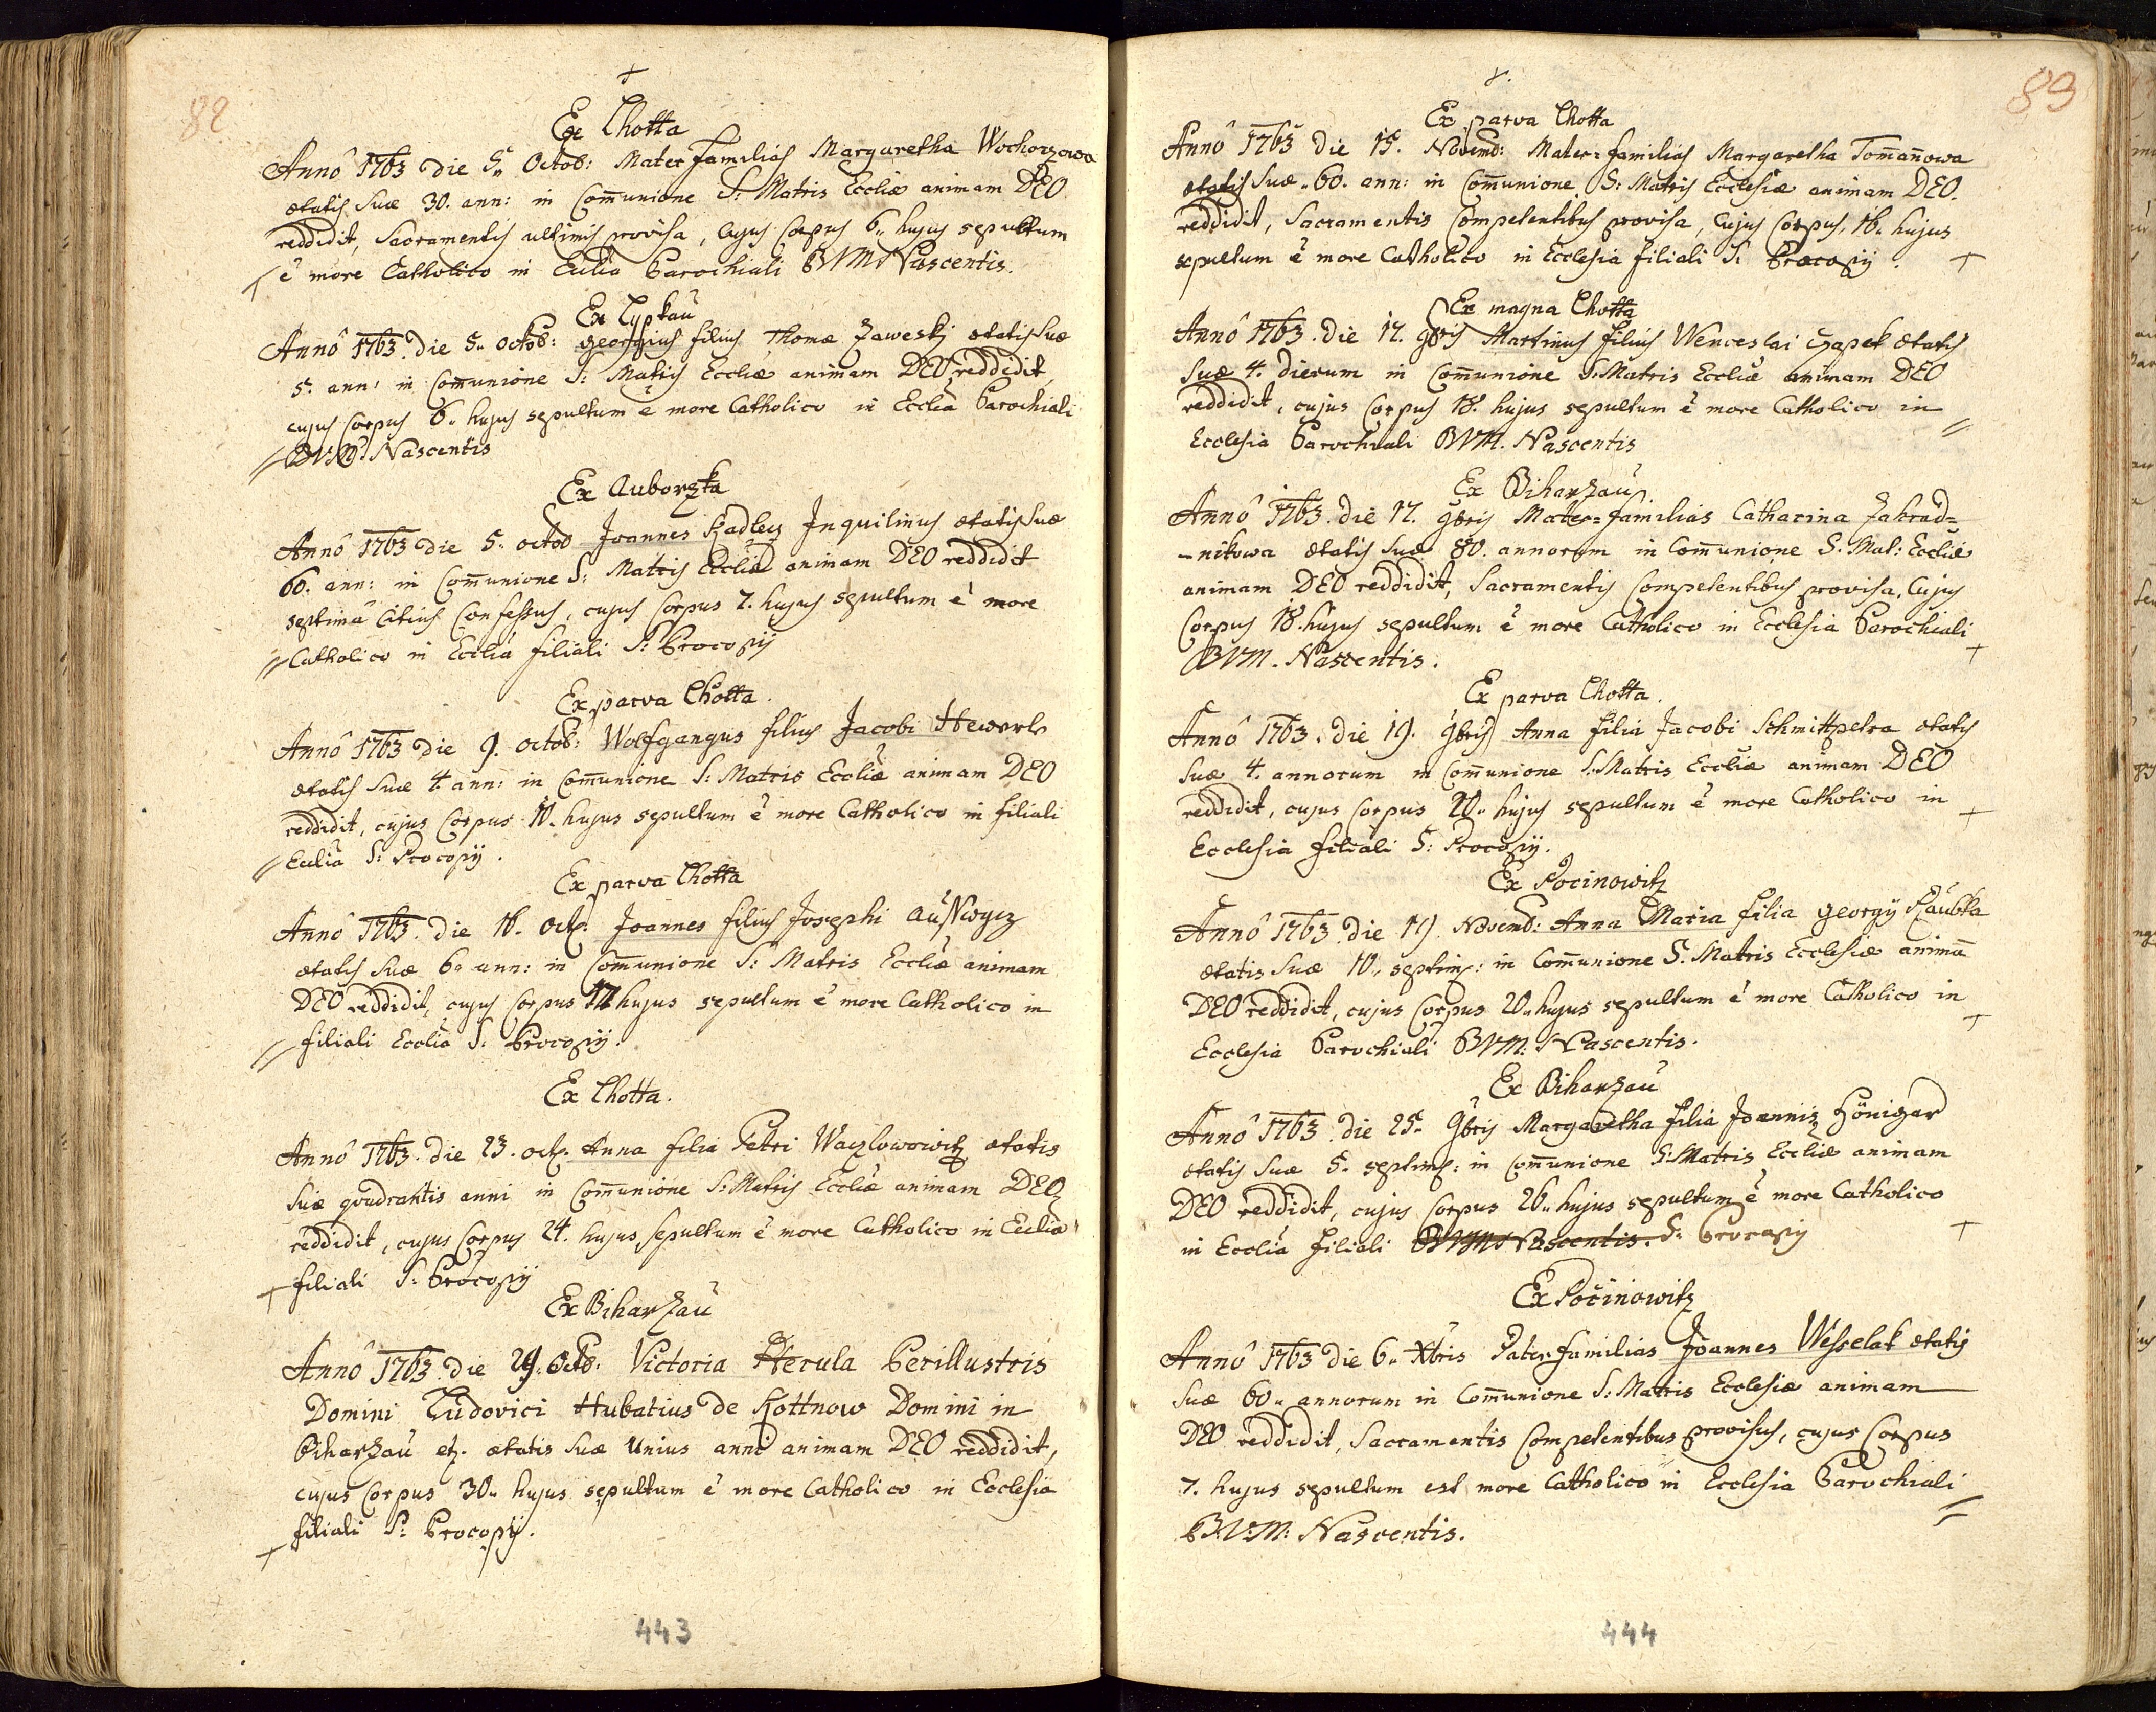 82
+
Ex Lhotta
Annô 1763 die 5" Octob: Mater Familiás Margaretha Wochozowa
ætatis suæ 30. ann: in Com̄unione S: Matris Eccliæ animam DEO
reddidit, Sacramentis ultimis provisa, Cujus Corpus 6" hujus sepultum
+ ẽ more Catholico in Ecclia Parochiali BVM Nascentis.
Ex Lypkau
Annô 1763. die 5" octob: georgius filius Thomæ Zaweskj ætatis suæ
5. ann: in Com̄unione S: Matris Eccliæ animam DEO reddidit,
cujus Corpus 6" hujus sepultum ẽ more Catholico in Ecclia Parochiali
// BVM Nascentis
Ex Auborzka
Annô 1763 die 5. octob Joannes Kadlecz Inquilinus ætatis suæ
60. ann: in Com̄unione S: Matris Eccliæ animam DEO reddidit
septimâ Citius Confessus, cujus Corpus 7. hujus sepultum ẽ more
// Catholico in Ecclia filiali S: Procopij
Ex parva Lhotta.
Annô 1763 die 9. octob: Wolfgangus filius Jacobi Hewerle
ætatis suæ 4. ann: in Com̄unione S: Matris Eccliæ animam DEO
reddidit, cujus Corpus 10. hujus sepultum ẽ more Catholico in filiali
// Ecclia S: Procopij.
Ex parva Lhotta
Annô 1763. die 16. oct. Joannes filius Josephi
ætatis suæ 6" ann: in Com̄unione S: Matris Eccliæ animam
DEO reddidit, cujus Corpus 17 hujus sepultum ẽ more Catholico in
// filiali Ecclia S: Procopij.
Ex Lhotta.
Annô 1763. die 23. oct. Anna filia Petri Waczlowowitz ætatis
suæ quadrantis anni in Com̄unione S: Matris Eccliæ animam DEO
reddidit, cujus Corpus 24. hujus sepultum ẽ more Catholico in Ecclia
+ filiali S: Procopij
Ex Biharzau
Annô 1763. die 29. Octb: Victoria Herula Perillustris
Domini Ludovici Hubatius de Kottnow Domini in
Biharzau etz. ætatis suæ Unius anni animam DEO reddidit,
cujus Corpus 30" hujus sepultum ẽ more Catholico in Ecclesia
+ filiali S: Procopij.
443
83
+.
Ex parva Lhotta
Annô 1763 die 15. Novemb: Mater=familiás Margaretha Tom̄an̄owa
ætatis suæ "60. ann: in Com̄unione S: Matris Ecclesiæ animam DEO.
reddidit, Sacramentis Competentibus provisa, Cujus Corpus, 16" hujus
sepultum ẽ more Catholico in Ecclesia filiali S: Procopij. +
Ex magna Lhotta
Annô 1763. die 17. 9bris Martinus filius Wenceslai Czapek ætatis
suæ 4. dierum in Com̄unione S: Matris Eccliæ animam DEO
reddidit, cujus Corpus 18. hujus sepultum ẽ more Catholico in
Ecclesia Parochiali BVM. Nascentis //
Ex Biharzau.
Annô 1763. die 17. 9bris Mater=familias Catharina Zahrad=
-nikowa ætatis suæ 80. annorum in Com̄unione S. Mat: Eccliæ
animam DEO reddidit, Sacramentis Competentibus provisa, Cujus
Corpus 18. hujus sepultum ẽ more Catholico in Ecclesia Parochiali
BVM. Nascentis. +
Ex parva Lhotta.
Annô 1763. die 19. 9bris Anna filia Jacobi Schmittpetra ætatis
suæ 4. annorum in Com̄unione S: Matris Eccliæ animam DEO
reddidit, cujus Corpus 20" hujus sepultum ẽ more Catholico in +
Ecclesia filiali S: Procopij.
Ex Pocinowitz
Annô 1763. die 19 Novemb: Anna Maria filia georgij Kaubka
ætatis suæ 10" septim: in Com̄unione S. Matris Ecclesiæ animā
DEO reddidit, cujus Corpus 20" hujus sepultum ẽ more Catholico in +
Ecclesia Parochiali BVM: Nascentis.
Ex Biharzau
Annô 1763. die 25. 9bris Margaretha filia Joannis Hönigar
ætatis suæ 5. septim: in Com̄unione S: Matris Eccliæ animam
DEO reddidit, cujus Corpus 26" hujus sepultum ẽ more Catholico
in Ecclia filiali BVM Nascentis. S: Procopij +
Ex Počinowitz
Annô 1763 die 6" Xbris Pater familias Joannes Wesselak ætatis
suæ 60" annorum in Com̄unione S: Matris Ecclesiæ animam
DEO reddidit, Sacramentis Competentibus provisus, cujus Corpus
7. hujus sepultum est more Catholico in Ecclesia Parochiali
B.V:M: Nascentis. //
444